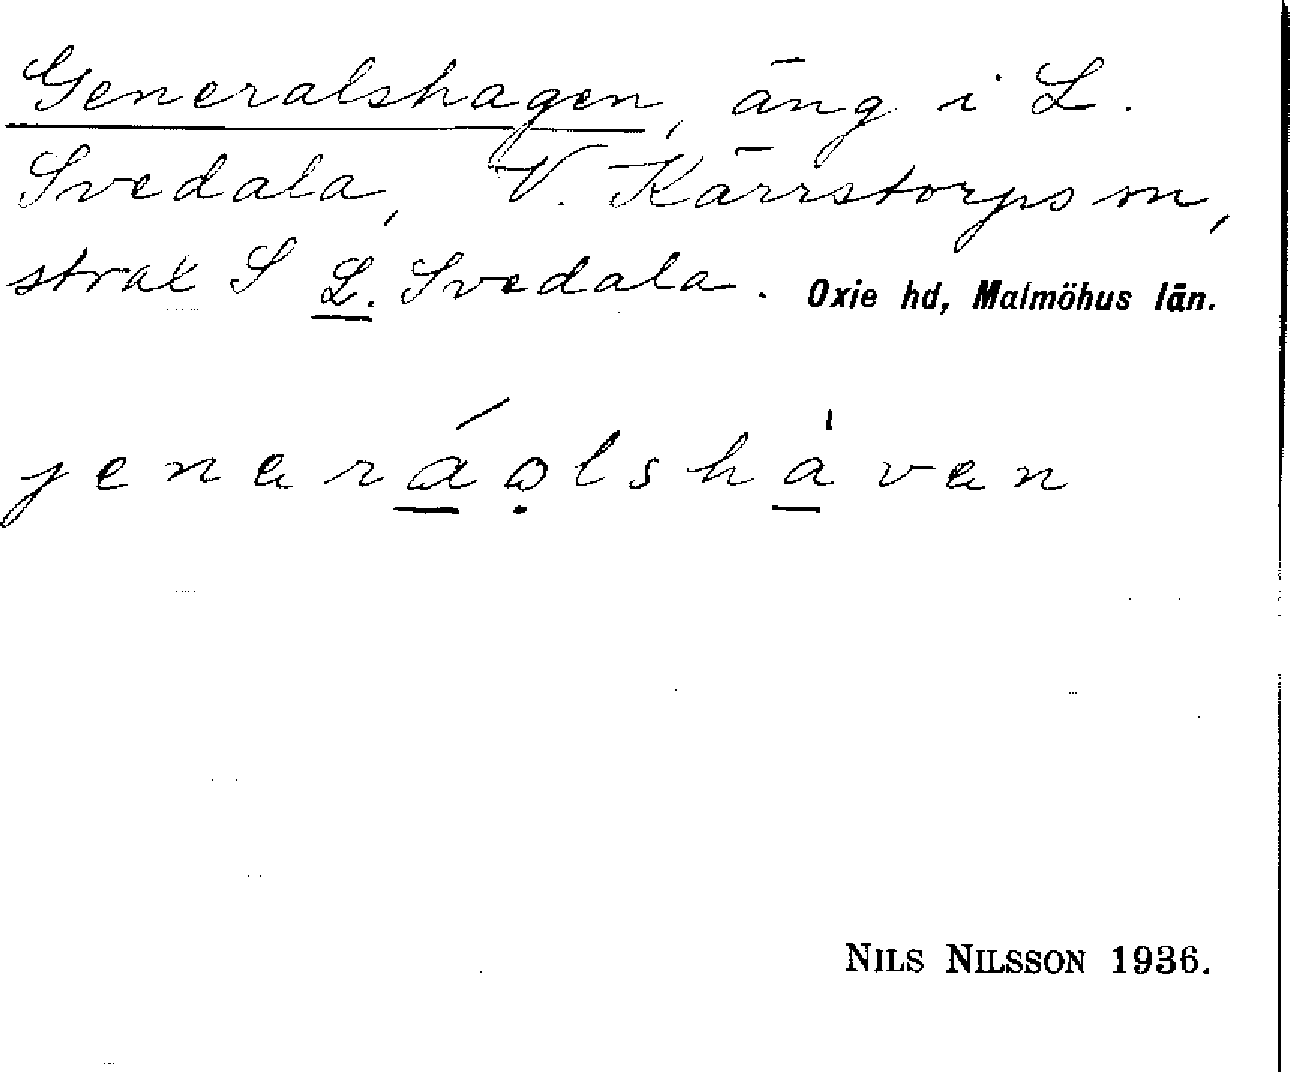 Generalshagen, äng i L.
Svedala, V. Kärrstorps sn,
strax S L. Svedala. Oxie hd, Malmöhus län.
jenaráo̤lshávan
NILS NILSSON 1936.